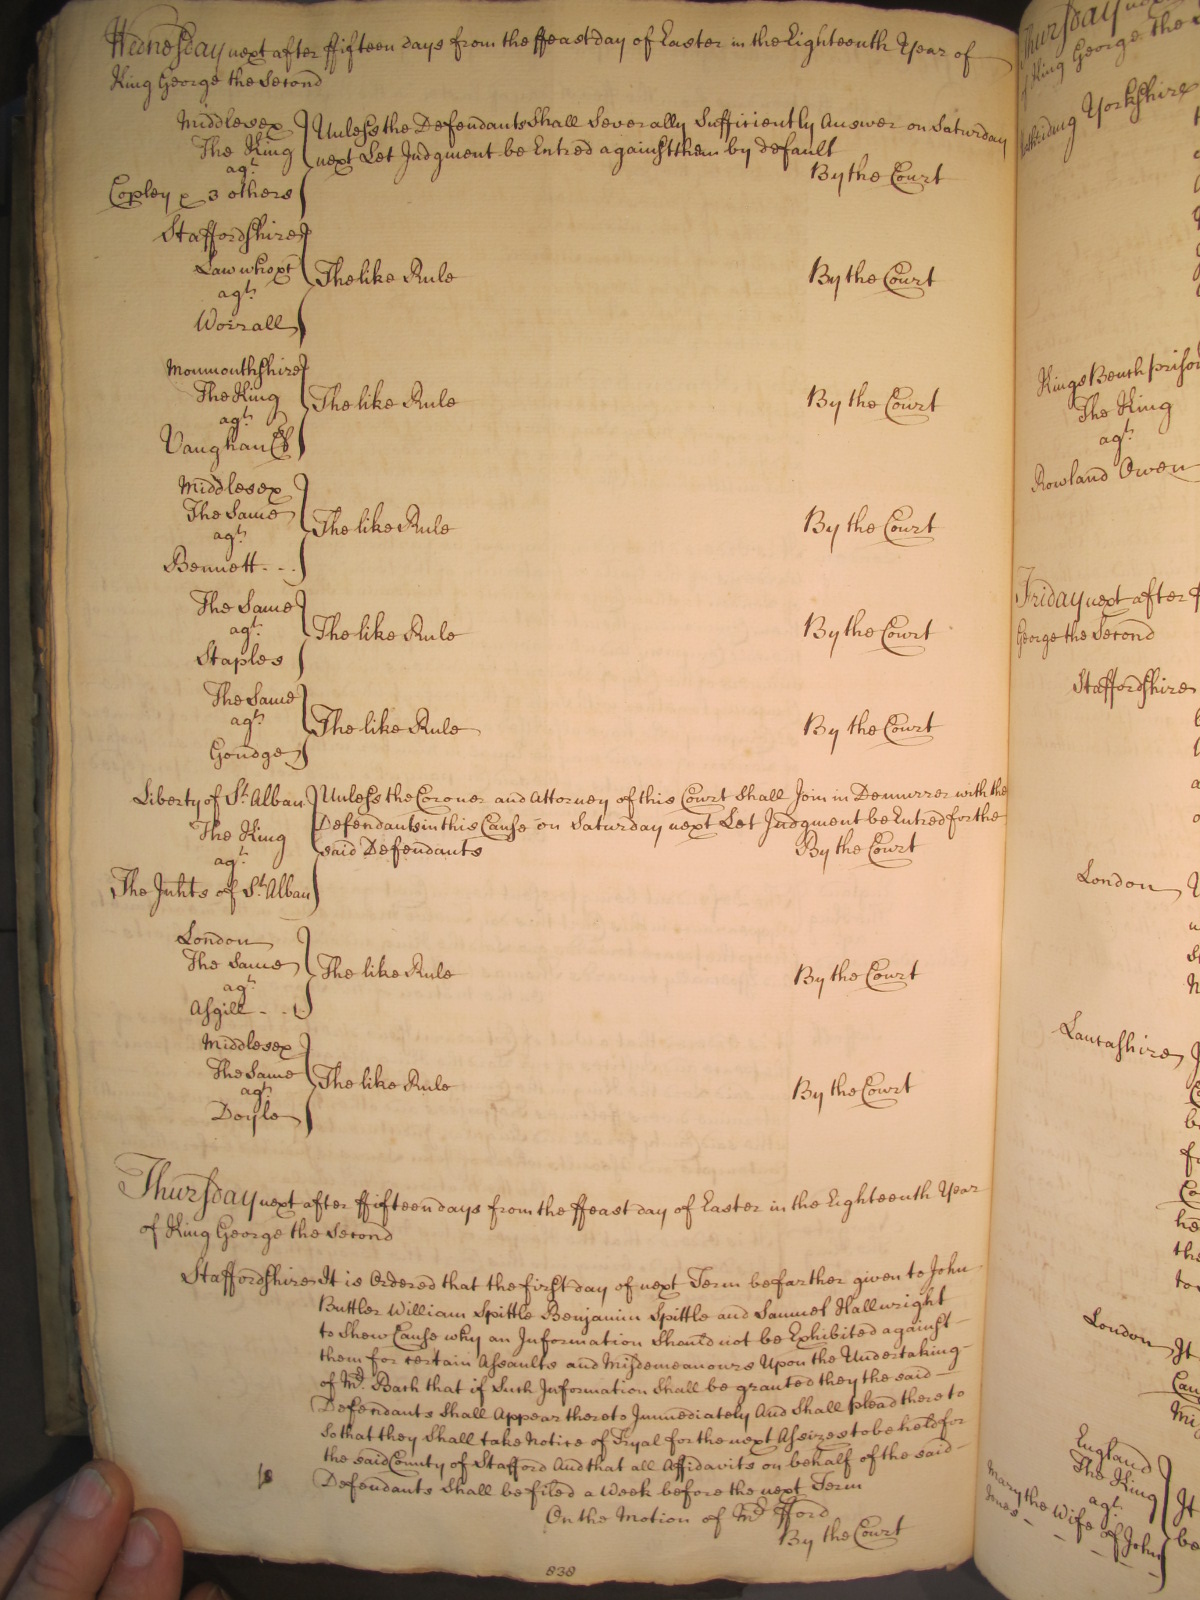 Wednesday next after ffifteen days from the ffeast day of Easter in the Eighteenth Year of
King George the Second
Middlesex
The King
agt.
Copley & 3 others
Unless the Defendants Shall Severally Sufficiently Answer on Saturday
next Let Judgment be Entred against them by default
By the Court
Staffordshire
agt.
Worrall
The like Rule
By the Court
Monmouthshire
The King
agt.
Vaughan
The like Rule
By the Court
Middlesex
The Same
agt.
Bennett - - -
The like Rule
By the Court
The Same
agt.
Staples
The like Rule
By the Court
The Same
agt.
Goudge
The like Rule
By the Court
Liberty of St. Alban
The King
agt.
The Inhts of St. Alban
Unless the Coroner and Attorney of this Court Shall Join in Demurrer with the
Defendants in this Cause on Saturday next Let Judgment be Entred for the
said Defendants
By the Court
London
The Same
agt.
Asgill - - -
The like Rule
By the Court
Middlesex
The Same
agt.
Doyle
The like Rule
By the Court
Thursday next after ffifteen days from the ffeast day of Easter in the Eighteenth Year
of King George the Second
Staffordshire It is Ordered that the first day of next Term be farther given to John
Buttler William Spittle Benjamin Spittle and Samuel Hallwright
to Shew Cause why an Information Should not be Exhibited against
them for certain Assaults and Misdemeanours Upon the Undertaking
of Mr. Bach that if Such Information Shall be granted they the said
Defendants Shall Appear thereto Immediately And Shall plead thereto
So that they Shall take Notice of Tryal for the next Assizes to be held for
the said County of Stafford And that all Affidavits on behalf of the said
Defendants Shall be filed a Week before the next Term
On the Motion of Mr. fford
By the Court
838
Thursday next
of King George the
Yorkshire
Kings Bench prison
The King
agt.
Rowland Owen
Friday next after
George the Second
Staffordshire
London
Lancashire
London It
England
The King
agt.
Mary the Wife of John
Jones - - - -
It
be